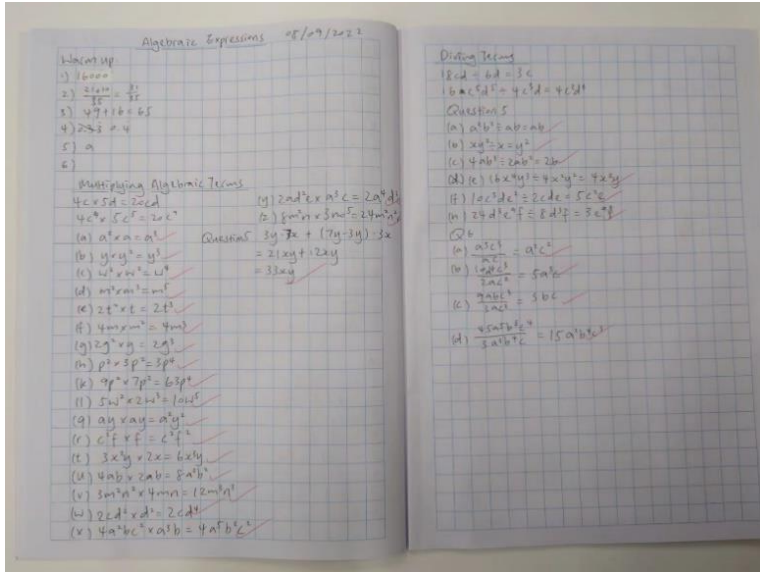 Algebraic Expressions 08/09/2022
Warm up
1) 16000
2) 21×10/35 = 31/35
3) 49+16 = 65
4) 0.4
5) a
6)
Multiplying Algebraic Terms
4c × 5d = 20cd
4c⁴ × 5c⁵ = 20c⁹
(a) a² × a = a³
(b) y × y² = y³
(c) w² × w² = w⁴
(d) m² × m³ = m⁵
(e) 2t² × t = 2t³
(f) 4m × m² = 4m³
(g) 2g² × g = 2g³
(h) p² × 3p² = 3p⁴
(k) 9p² × 7p² = 63p⁴
(l) 5w² × 2w³ = 10w⁵
(q) ay × ay = a²y²
(r) c²f × f = c²f²
(t) 3x²y × 2x = 6x³y
(u) 4ab × 2ab = 8a²b²
(v) 3m²n² × 4mn = 12m³n³
(w) 2cd² × d² = 2cd⁴
(x) 4a²bc² × a³b = 4a⁵b²c²
(y) 2ad²c × a³c = 2a⁴d²
(z) 8m²n × 3mn⁵ = 24m³n⁶
Question 5 3y·7x + (7y-3y)·3x
= 21xy + 12xy
= 33xy
Diving Terms
18cd ÷ 6d = 3c
16c⁵d⁵ ÷ 4c²d = 4c³d⁴
Question 5
(a) a²b² ÷ ab = ab
(b) xy² ÷ x = y²
(c) 4ab³ ÷ 2ab² = 2b
(d) (e) 16x⁴y³ ÷ 4x²y² = 4x²y
(f) 10c³de² ÷ 2cde = 5c²e
(h) 24d³e⁴f ÷ 8d³f = 3e⁴
Q6
(a) a³c³/ac = a²c²
(b) = 5a³c
(c) 9abc³/3ac² = 3bc
(d) = 15a²b⁴c³